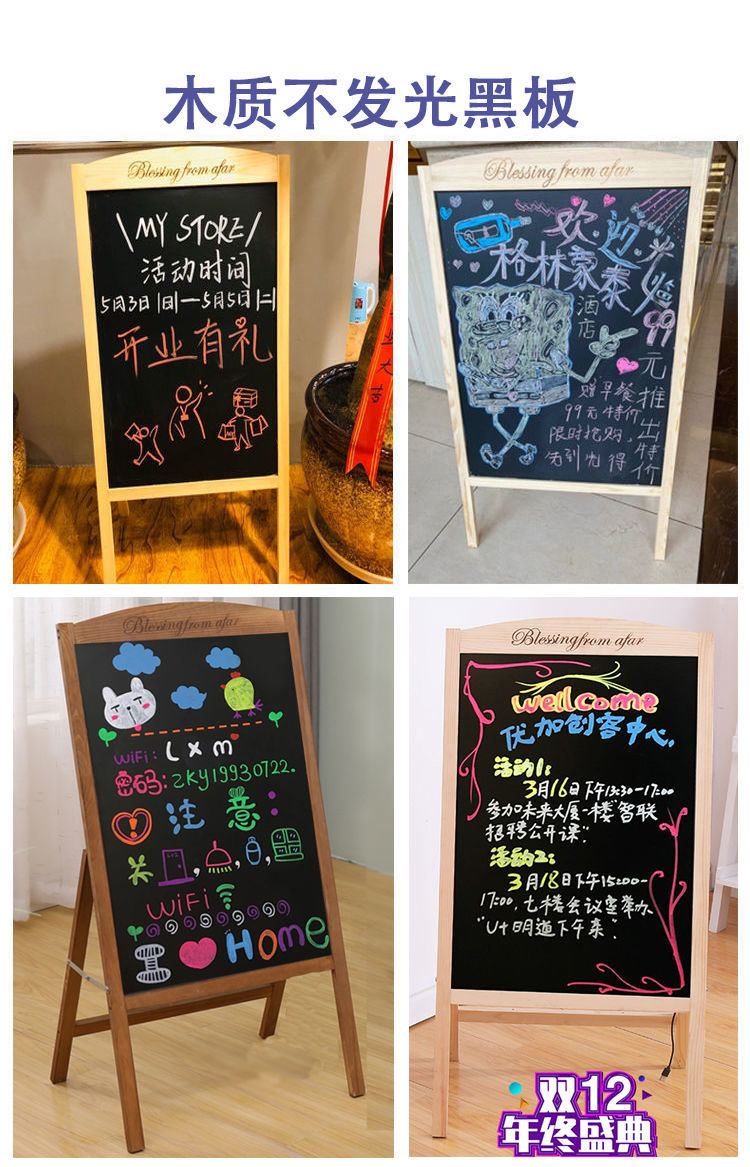 木质不发光黑板
Blessing from afar
\MY STORE/
活动时间
5月3日(日)—5月5日(二)
开业有礼
业大吉
Blessing from afar
欢迎光临
格林蒙泰
酒店
99元推出特价
赠早餐
99元特价
限时抢购,
先到先得
Blessing from afar
WiFi: Lxm
密码: zky19930722.
注意:
关
WiFi
I Home
Blessing from afar
wellcome
优加创客中心.
活动1:
3月16日下午13:30-17:00
参加未来大厦一楼"智联
招聘公开课"
活动2:
3月18日下午15:00-
17:00,七楼会议室举办
"U+明道下午茶".
双12
年终盛典